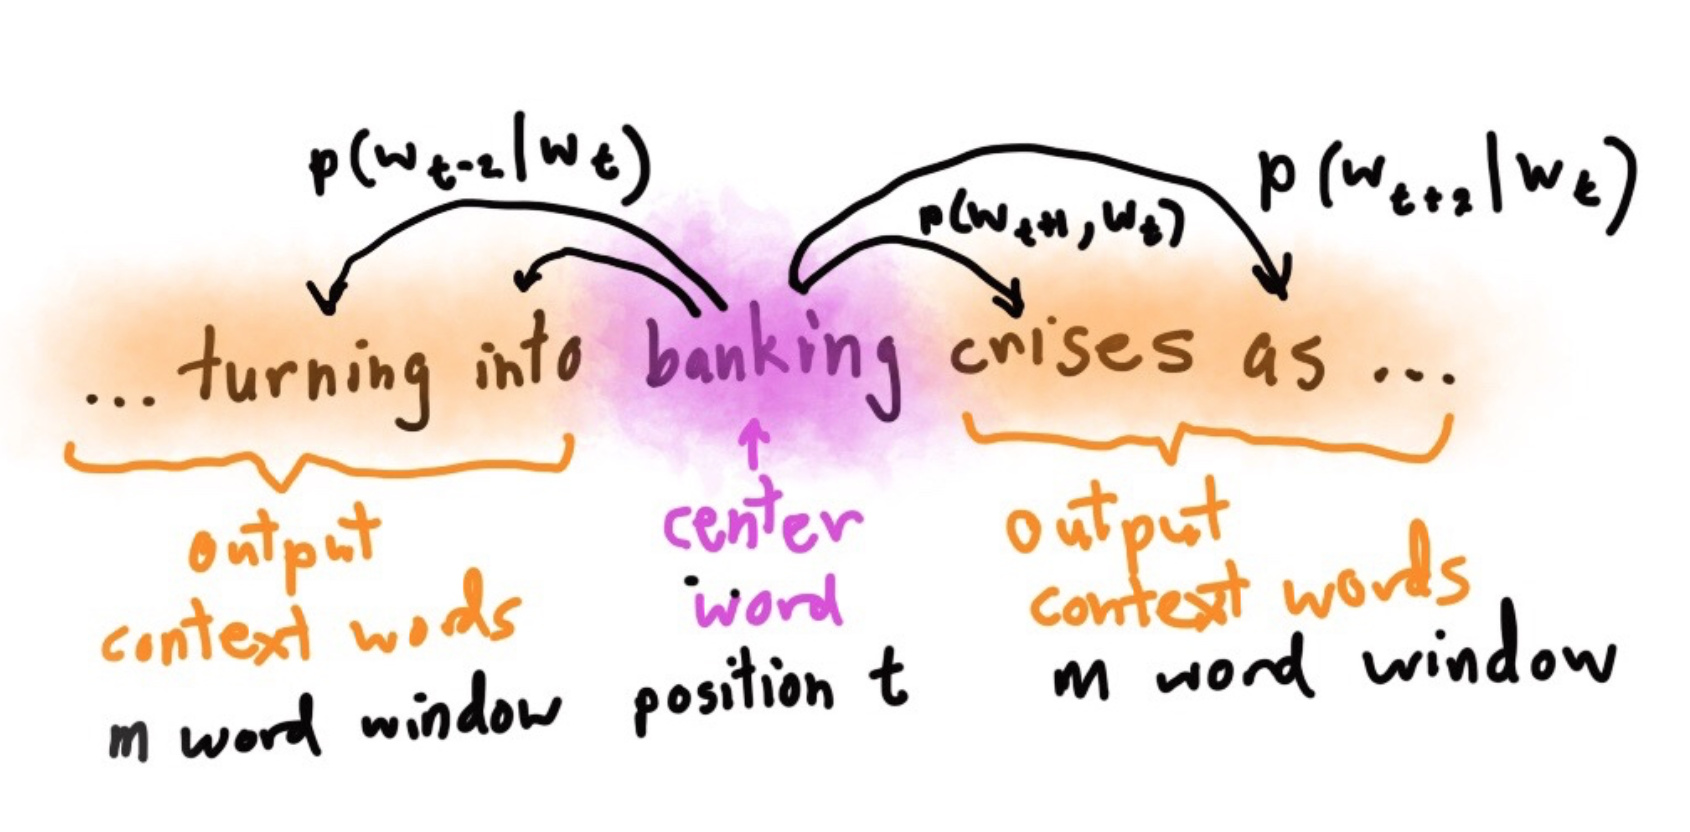 p(w_{t-2}|w_t)
p(w_{t+1},w_t)
p(w_{t+2}|w_t)
... turning into banking crises as ...
output
context words
m word window
center
word
position t
output
context words
m word window